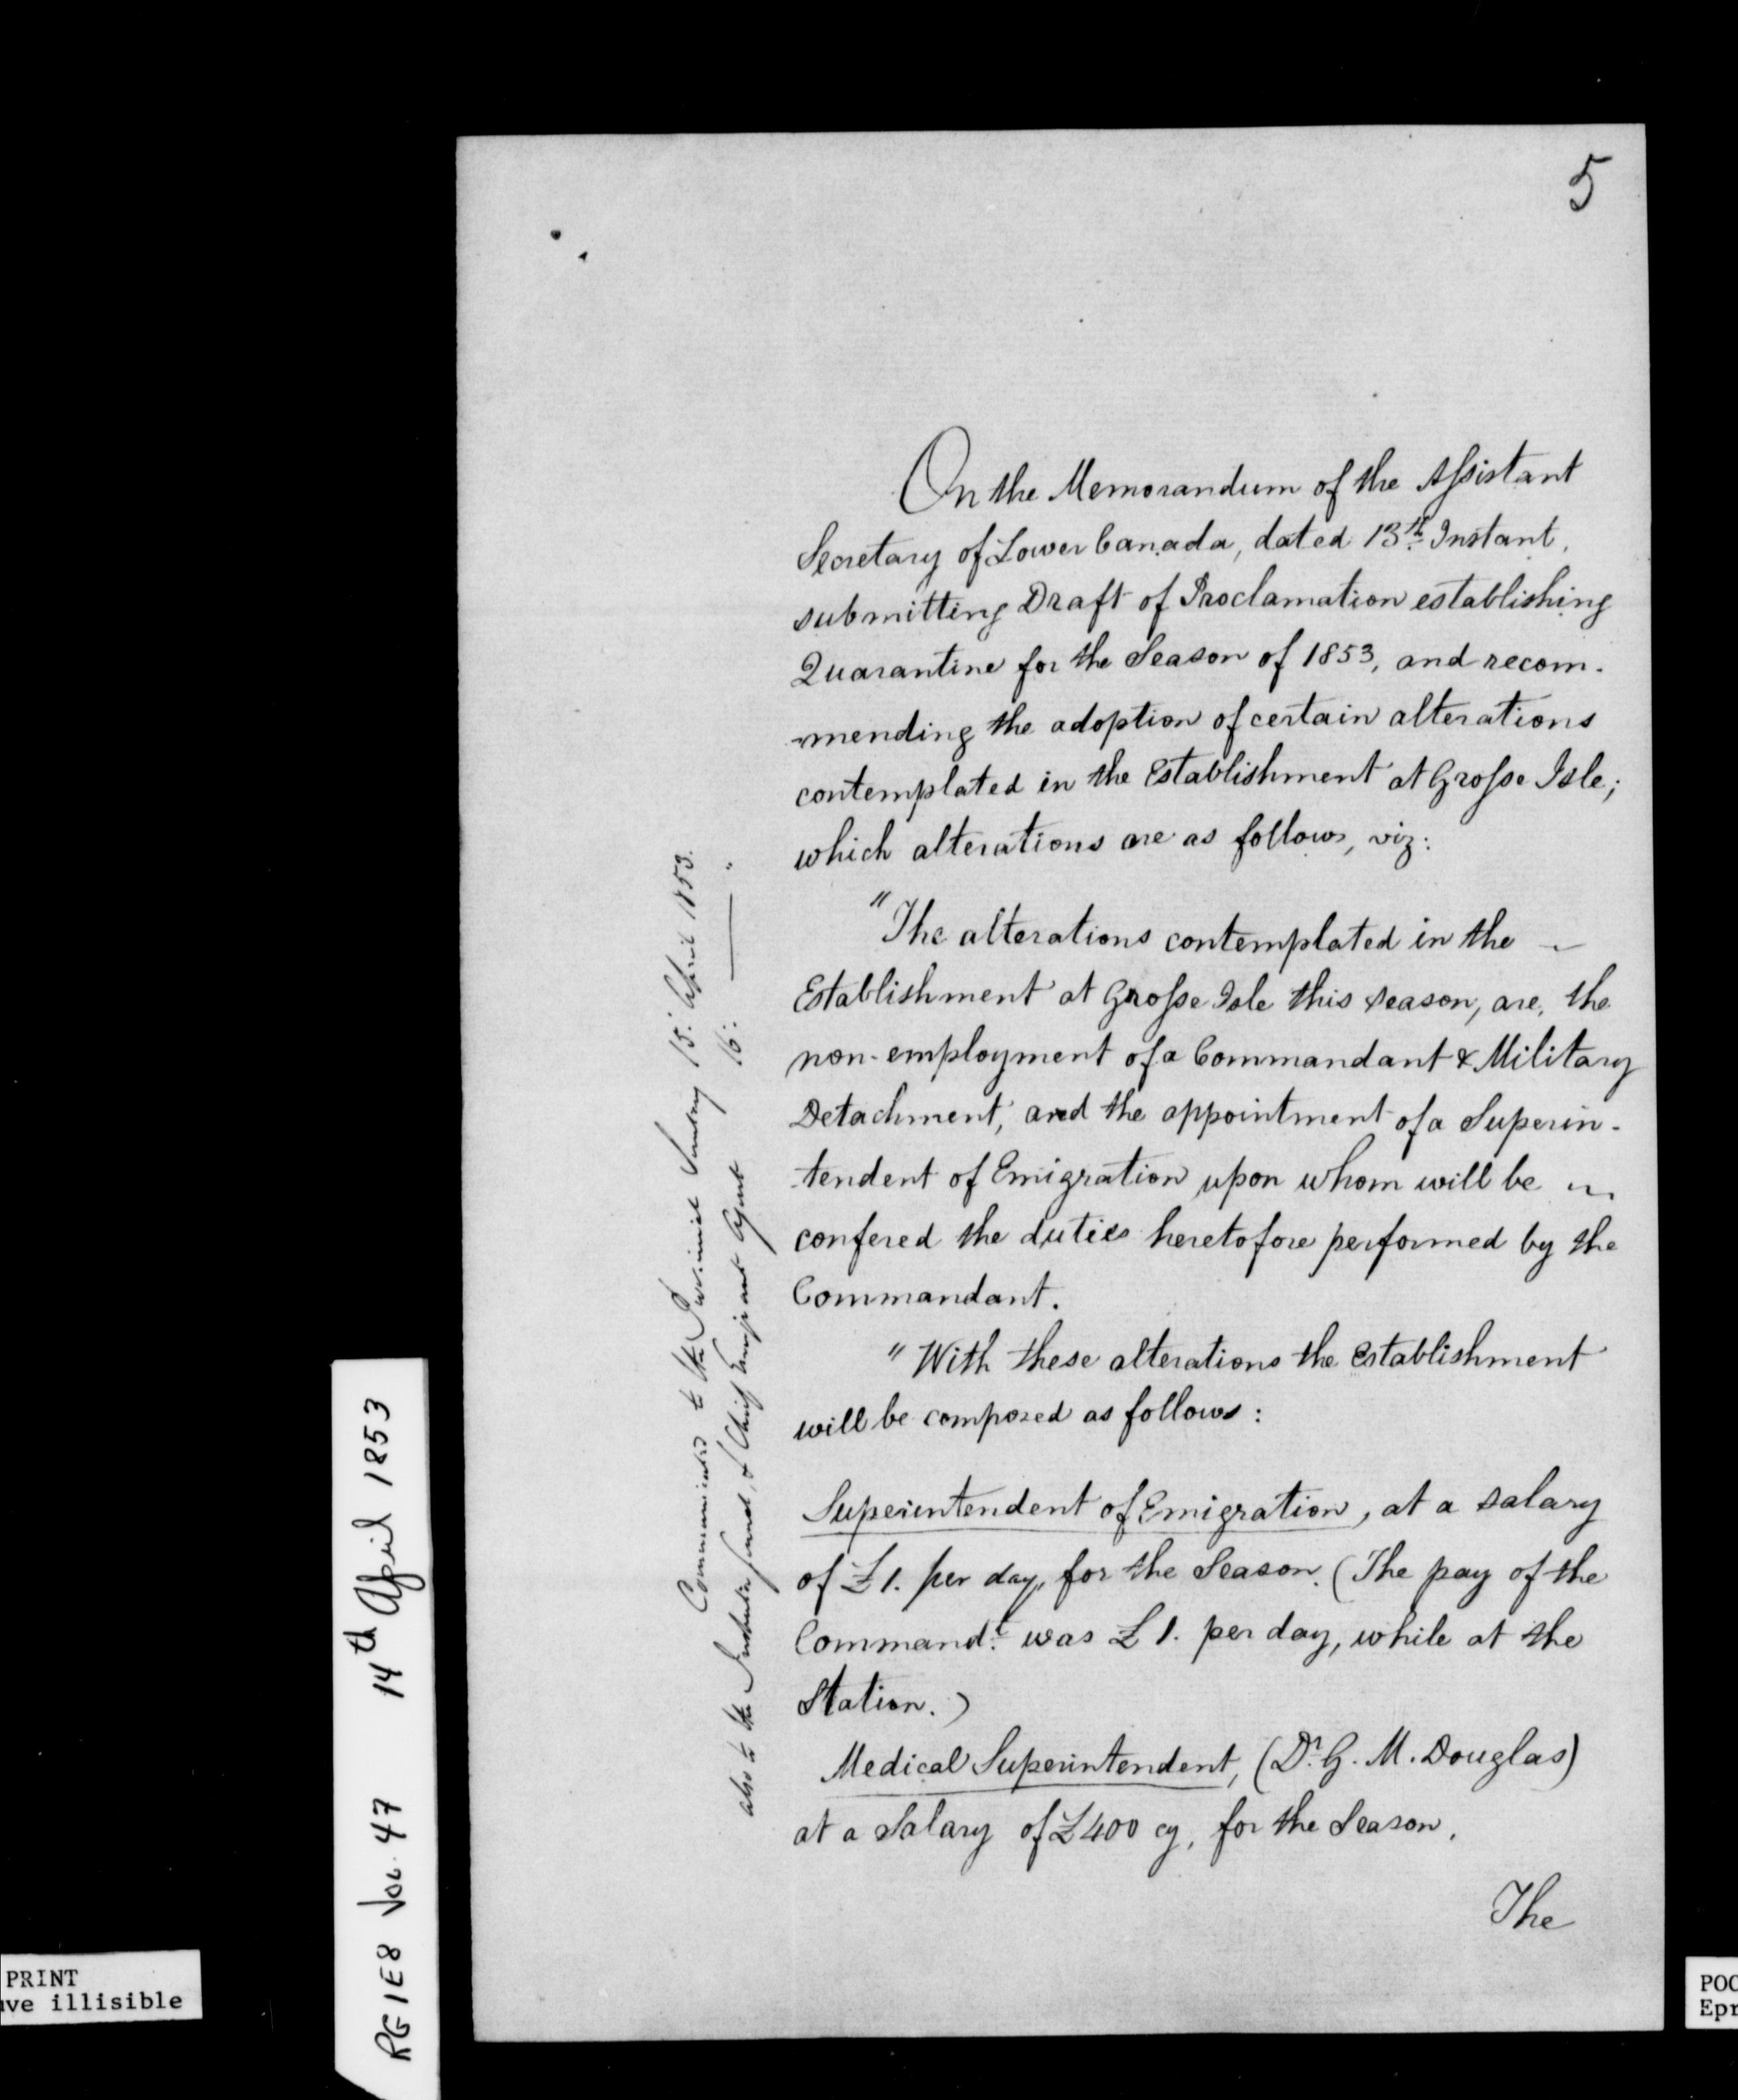 5
On the Memorandum of the Assistant
Secretary of Lower Canada, dated 13th Instant,
submitting Draft of Proclamation establishing
Quarantine for the Season of 1853, and recom-
-mending the adoption of certain alterations
contemplated in the Establishment at Grosse Isle;
which alterations are as follows, viz:
"The alterations contemplated in the
Establishment at Grosse Isle this season, are, the
non-employment of a Commandant & Military
Detachment, and the appointment of a Superin-
-tendent of Emigration upon whom will be
confered the duties heretofore performed by the
Commandant.
"With these alterations the Establishment
will be composed as follows:
Superintendent of Emigration, at a salary
of £1. per day, for the Season. (The pay of the
Command.t was £1. per day, while at the
Station.)
Medical Superintendent, (Dr. G. M. Douglas)
at a Salary of £400 cy, for the Season.
The
Communicated to the Provincial Secretary 15. April 1853.
also to the General, & Chief Emigrant Agent 16. — "
RG1E8 Vol. 47 14th April 1853
PRINT
ve illisible
POO
Epr